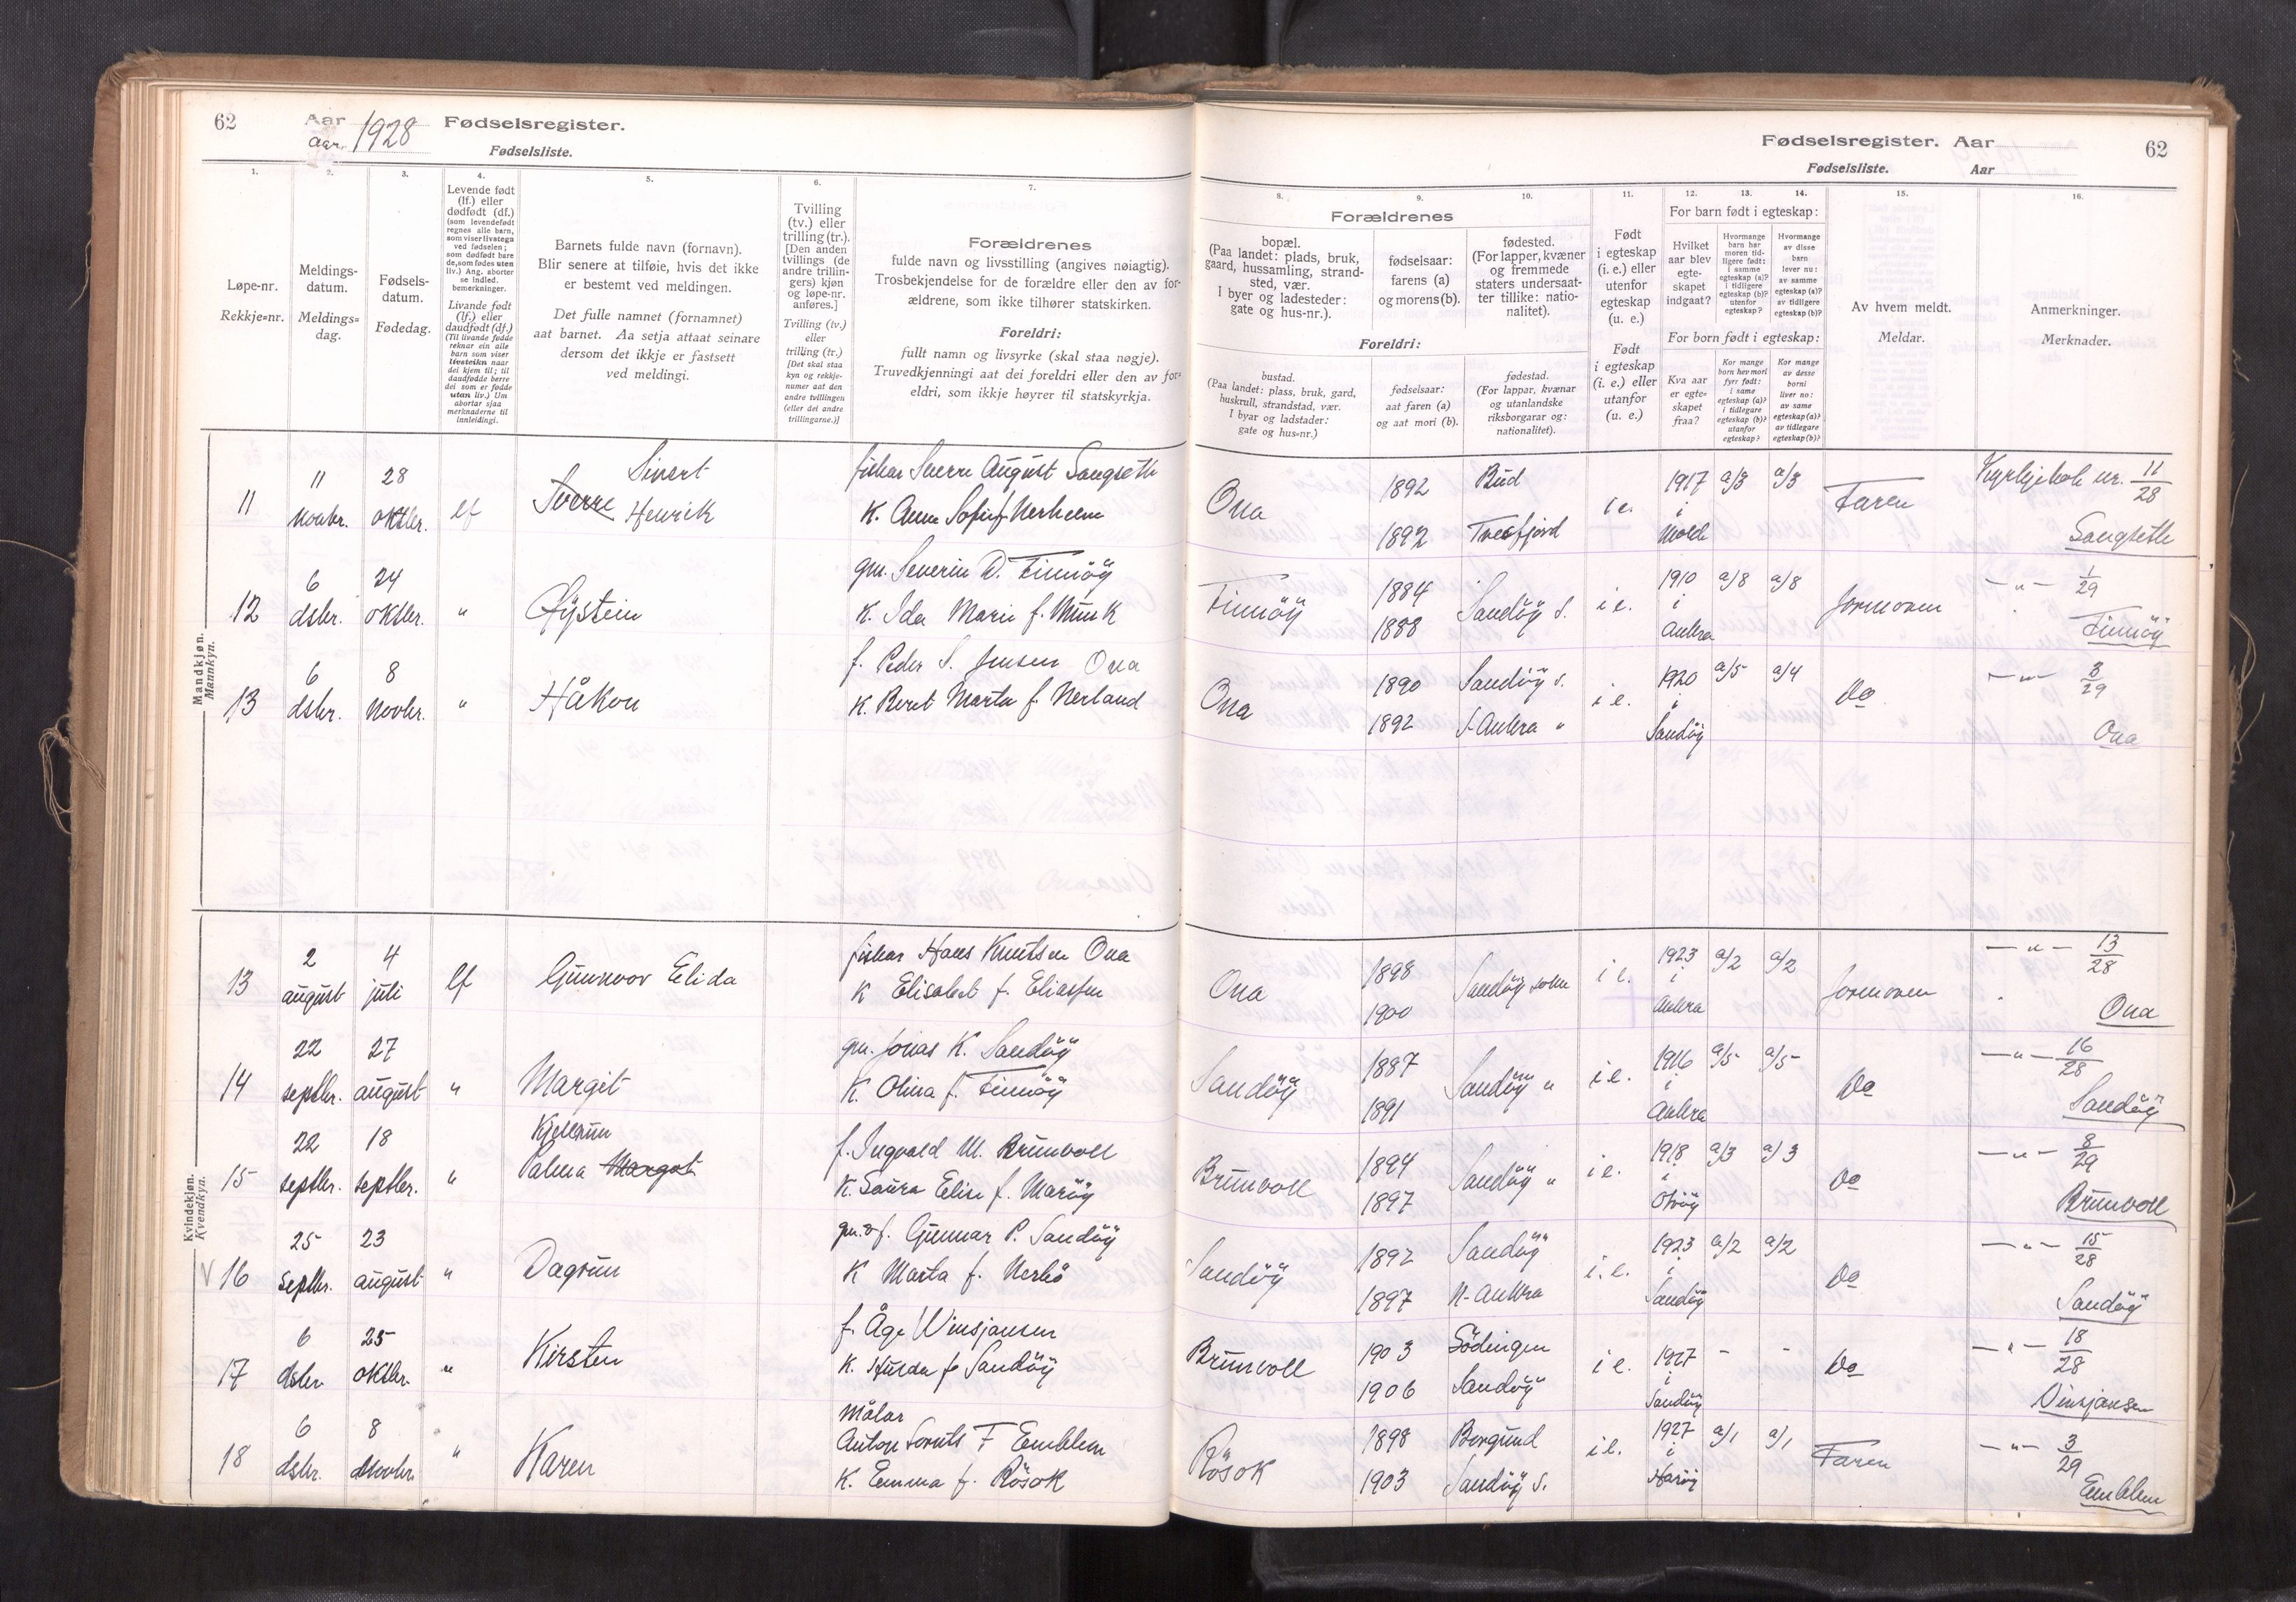 62
Aar
Aar. 1928
Fødselsregister.
Fødselsliste.
1.
Løpe-nr.
Rekkje=nr.
2.
Meldings-
datum.
Meldings=
dag.
3.
Fødsels-
datum.
Fødedag.
4.
Levende født
(lf.) eller
dødfødt (df.)
(som levendefødt
regnes alle barn,
som viser livstegn
ved fødselen;
som dødfødt bare
de, som fødes uten
liv.) Ang. aborter
se indled.
bemerkninger.
Livande født
(lf.) eller
daudfødt (df.)
(Til livande fødde
reknar ein alle
barn som viser
livsteikn naar
dei kjem til; til
daudfødde berre
dei som er fødde
utan liv.) Um
abortar sjaa
merknaderne til
innleidingi.
5.
Barnets fulde navn (fornavn).
Blir senere at tilføie, hvis det ikke
er bestemt ved meldingen.
Det fulle namnet (fornamnet)
aat barnet. Aa setja attaat seinare
dersom det ikkje er fastsett
ved meldingi.
6.
Tvilling
(tv.) eller
trilling (tr.).
[Den anden
tvillings (de
andre trillin-
gers) kjøn
og løpe-nr.
anføres.]
Tvilling (tv.)
eller
trilling (tr.)
[Det skal staa
kyn og rekkje-
numer aat den
andre tvillingen
(eller dei andre
trillingarne.)]
7.
Forældrenes
fulde navn og livsstilling (angives nøiagtig).
Trosbekjendelse for de forældre eller den av for-
ældrene, som ikke tilhører statskirken.
Foreldri:
fullt namn og livsyrke (skal staa nøgje).
Truvedkjenningi aat dei foreldri eller den av for=
eldri, som ikkje høyrer til statskyrkja.
Fødselsregister. Aar
62
Fødselsliste. Aar
8.
Forældrenes
bopæl.
(Paa landet: plads, bruk,
gaard, hussamling, strand-
sted, vær.
I byer og ladesteder:
gate og hus-nr.).
9.
fødselsaar:
farens (a)
og morens (b).
10.
fødested.
(For lapper, kvæner
og fremmede
staters undersaat-
ter tillike: natio-
nalitet).
Foreldri:
bustad.
(Paa landet: plass, bruk, gard,
huskrull, strandstad, vær.
I byar og ladstader:
gate og hus=nr.)
fødselsaar:
aat faren (a)
og aat mori (b).
fødestad.
(For lappar, kvænar
og utanlandske
riksborgarar og:
nationalitet).
11.
Født
i egteskap
(i. e.) eller
utenfor
egteskap
(u. e.)
Født
i egteskap
(i. e.) eller
utanfor
(u. e.)
12. 13. 14.
For barn født i egteskap:
Hvilket
aar blev
egte-
skapet
indgaat?
Hvormange
barn har
moren tid-
ligere født:
i samme
egteskap (a)?
i tidligere
egteskap (b)?
utenfor
egteskap?
Hvormange
av disse
barn
lever nu:
av samme
egteskap (a)?
av tidligere
egteskap (b)?
For born født i egteskap:
Kva aar
er egte=
skapet
fraa?
Kor mange
born hev mori
fyrr født:
i same
egteskap (a)?
i tidlegare
egteskap (b)?
utanfor
egteskap?
Kor mange
av desse
borni
liver no:
av same
egteskap (a)?
av tidlegare
egteskap (b)?
15.
Av hvem meldt.
Meldar.
16.
Anmerkninger.
Merknader.
Mandkjøn.
Mannkyn.
11 11 novbr. 28 oktbr. lf Sivert Sverre Henrik
fiskar Sverre August Sangseth
K. Anna Sofie f. Nerheim
Ona 1892 1892 Bud Tresfjord i e. 1917 i Molde a/3 a/3 Faren Kyrkjebok nr. 11/28 Sangseth
12 6 dsbr. 24 oktbr. " Øystein
gm. Severin D. Finnöy
K. Ida Marie f. Munk
Finnöy 1884 1888 Sandöy s. i e. 1910 i Aukra a/8 a/8 Jormoren — " — 1/29 Finnöy
13 6 dsbr. 8 novbr. " Håkon
f. Peder S. Jensen Ona
K. Beret Marta f. Nerland
Ona 1890 1892 Sandöy s. S. Aukra " i e. 1920 " Sandöy a/5 a/4 Do — " — 3/29 Ona
Kvindekjøn.
Kvendkyn.
13 2 august 4 juli lf Gunnvor Elida
fiskar Hans Knutsen Ona
K Elisabet f. Eliassen
Ona 1898 1900 Sandöy sokn i e. 1923 i Aukra a/2 a/2 Jormoren — " — 13/28 Ona
14 22 septbr. 27 august " Margit
gm. Jonas K. Sandöy
K. Olina f. Finnöy
Sandöy 1887 1891 Sandöy " i e. 1916 i Aukra a/5 a/5 Do — " — 16/28 Sandöy
15 22 septbr. 18 septbr. " Kjellrun Palma Margot
f. Ingvald M. Brunvoll
K. Laura Elise f. Maröy
Brunvoll 1894 1897 Sandöy " i e. 1918 i a/3 a/3 Do — " — 8/29 Brunvoll
V 16 25 septbr. 23 august " Dagrun
gm. & f. Gunnar P. Sandöy
K Marta f. Nerbö
Sandöy 1892 1897 Sandöy N-Aukra i. e. 1923 i Sandöy a/2 a/2 Do — " — 15/28 Sandöy
17 6 dsbr 25 oktbr. " Kirsten
f. Åge Vinsjansen
K. Hulda f. Sandöy
Brunvoll 1903 1906 Lödingen Sandöy i e. 1927 i Sandöy - - Do — " — 18/28 Vinsjansen
18 6 dsbr. 8 novbr. " Karen
Målar
Anton Lorents F Emblem
K. Emma f. Rösok
Rösok 1898 1903 Borgund Sandöy s. i e. 1927 i Haröy a/1 a/1 Faren — " — 3/29 Emblem